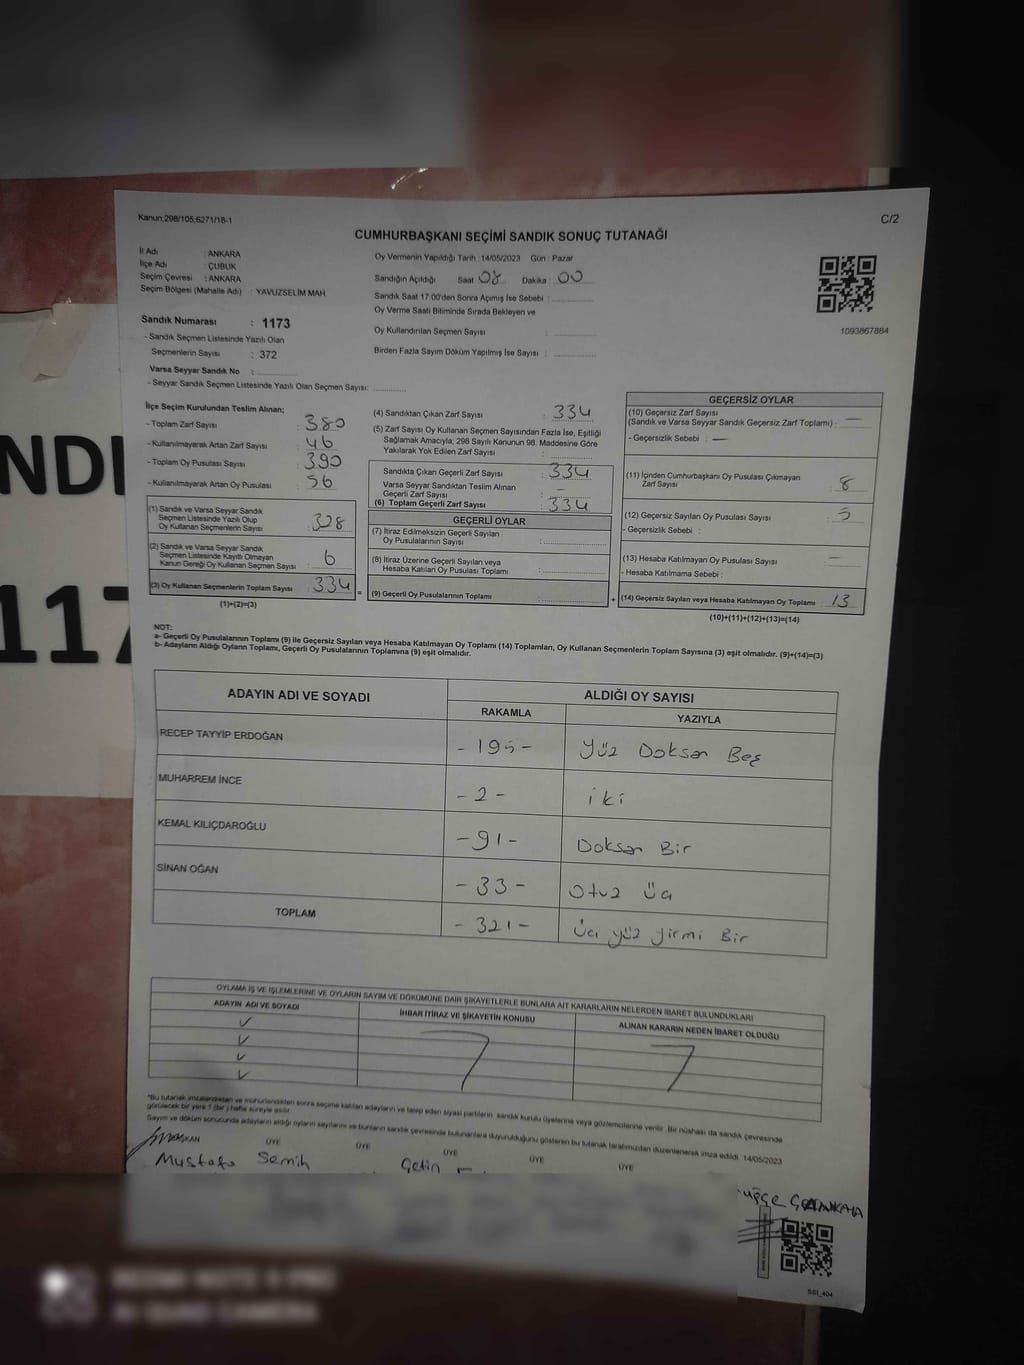 Kanun;298/105;6271/18-1
C/2
CUMHURBAŞKANI SEÇİMİ SANDIK SONUÇ TUTANAĞI
İl Adı : ANKARA
İlçe Adı : ÇUBUK
Seçim Çevresi : ANKARA
Seçim Bölgesi (Mahalle Adı) : YAVUZSELİM MAH.
Oy Vermenin Yapıldığı Tarih :14/05/2023 Gün : Pazar
Sandığın Açıldığı Saat 08 Dakika : 00
Sandık Saat 17:00'den Sonra Açımış İse Sebebi :
Oy Verme Saati Bitiminde Sırada Bekleyen ve
Oy Kullandırılan Seçmen Sayısı :
Birden Fazla Sayım Döküm Yapılmış İse Sayısı :
1093867884
Sandık Numarası : 1173
- Sandık Seçmen Listesinde Yazılı Olan
Seçmenlerin Sayısı : 372
Varsa Seyyar Sandık No :
- Seyyar Sandık Seçmen Listesinde Yazılı Olan Seçmen Sayısı:
NDI
117
İlçe Seçim Kurulundan Teslim Alınan;
- Toplam Zarf Sayısı : 380
- Kullanılmayarak Artan Zarf Sayısı : 46
- Toplam Oy Pusulası Sayısı : 390
- Kullanılmayarak Artan Oy Pusulası : 56
(1) Sandık ve Varsa Seyyar Sandık
Seçmen Listesinde Yazılı Olup
Oy Kullanan Seçmenlerin Sayısı : 328
(2) Sandık ve Varsa Seyyar Sandık
Seçmen Listesinde Kayıtlı Olmayan
Kanun Gereği Oy Kullanan Seçmen Sayısı : 6
(3) Oy Kullanan Seçmenlerin Toplam Sayısı : 334
(1)+(2)=(3)
(4) Sandıktan Çıkan Zarf Sayısı : 334
(5) Zarf Sayısı Oy Kullanan Seçmen Sayısından Fazla İse, Eşitliği
Sağlamak Amacıyla; 298 Sayılı Kanunun 98. Maddesine Göre
Yakılarak Yok Edilen Zarf Sayısı :
Sandıkta Çıkan Geçerli Zarf Sayısı : 334
Varsa Seyyar Sandıktan Teslim Alınan
Geçerli Zarf Sayısı : –
(6) Toplam Geçerli Zarf Sayısı : 334
GEÇERLİ OYLAR
(7) İtiraz Edilmeksizin Geçerli Sayılan
Oy Pusulalarının Sayısı :
(8) İtiraz Üzerine Geçerli Sayılan veya
Hesaba Katılan Oy Pusulası Toplamı :
(9) Geçerli Oy Pusulalarının Toplamı :
GEÇERSİZ OYLAR
(10) Geçersiz Zarf Sayısı
(Sandık ve Varsa Seyyar Sandık Geçersiz Zarf Toplamı) : —
- Geçersizlik Sebebi : —
(11) İçinden Cumhurbaşkanı Oy Pusulası Çıkmayan
Zarf Sayısı : 8
(12) Geçersiz Sayılan Oy Pusulası Sayısı : 5
- Geçersizlik Sebebi :
(13) Hesaba Katılmayan Oy Pusulası Sayısı : —
- Hesaba Katılmama Sebebi :
(14) Geçersiz Sayılan veya Hesaba Katılmayan Oy Toplamı : 13
(10)+(11)+(12)+(13)=(14)
NOT:
a- Geçerli Oy Pusulalarının Toplamı (9) ile Geçersiz Sayılan veya Hesaba Katılmayan Oy Toplamı (14) Toplamları, Oy Kullanan Seçmenlerin Toplam Sayısına (3) eşit olmalıdır. (9)+(14)=(3)
b- Adayların Aldığı Oyların Toplamı, Geçerli Oy Pusulalarının Toplamına (9) eşit olmalıdır.
ADAYIN ADI VE SOYADI
ALDIĞI OY SAYISI
RAKAMLA YAZIYLA
RECEP TAYYİP ERDOĞAN - 195 - Yüz Doksan Beş
MUHARREM İNCE - 2 - iki
KEMAL KILIÇDAROĞLU - 91 - Doksan Bir
SİNAN OĞAN - 33 - Otuz Üç
TOPLAM - 321 - Üç yüz yirmi Bir
OYLAMA İŞ VE İŞLEMLERİNE VE OYLARIN SAYIM VE DÖKÜMÜNE DAİR ŞİKAYETLERLE BUNLARA AİT KARARLARIN NELERDEN İBARET BULUNDUKLARI
ADAYIN ADI VE SOYADI
İHBAR İTİRAZ VE ŞİKAYETİN KONUSU
ALINAN KARARIN NEDEN İBARET OLDUĞU
*Bu tutanak imzalandıktan ve mühürlendikten sonra seçime katılan adayların ve talep eden siyasi partilerin sandık kurulu üyelerine veya gözlemcilerine verilir. Bir nüshası da sandık çevresinde
görülecek bir yere 1 (bir) hafta süreyle asılır.
Sayım ve döküm sonucunda adayların aldığı oyların sayılarını ve bunların sandık çevresinde bulunanlara duyurulduğunu gösteren bu tutanak tarafımızdan düzenlenerek imza edildi. 14/05/2023
BAŞKAN ÜYE ÜYE ÜYE ÜYE ÜYE
Mustafa Semih Çetin
SSI_404
REDMI NOTE 9 PRO
AI QUAD CAMERA